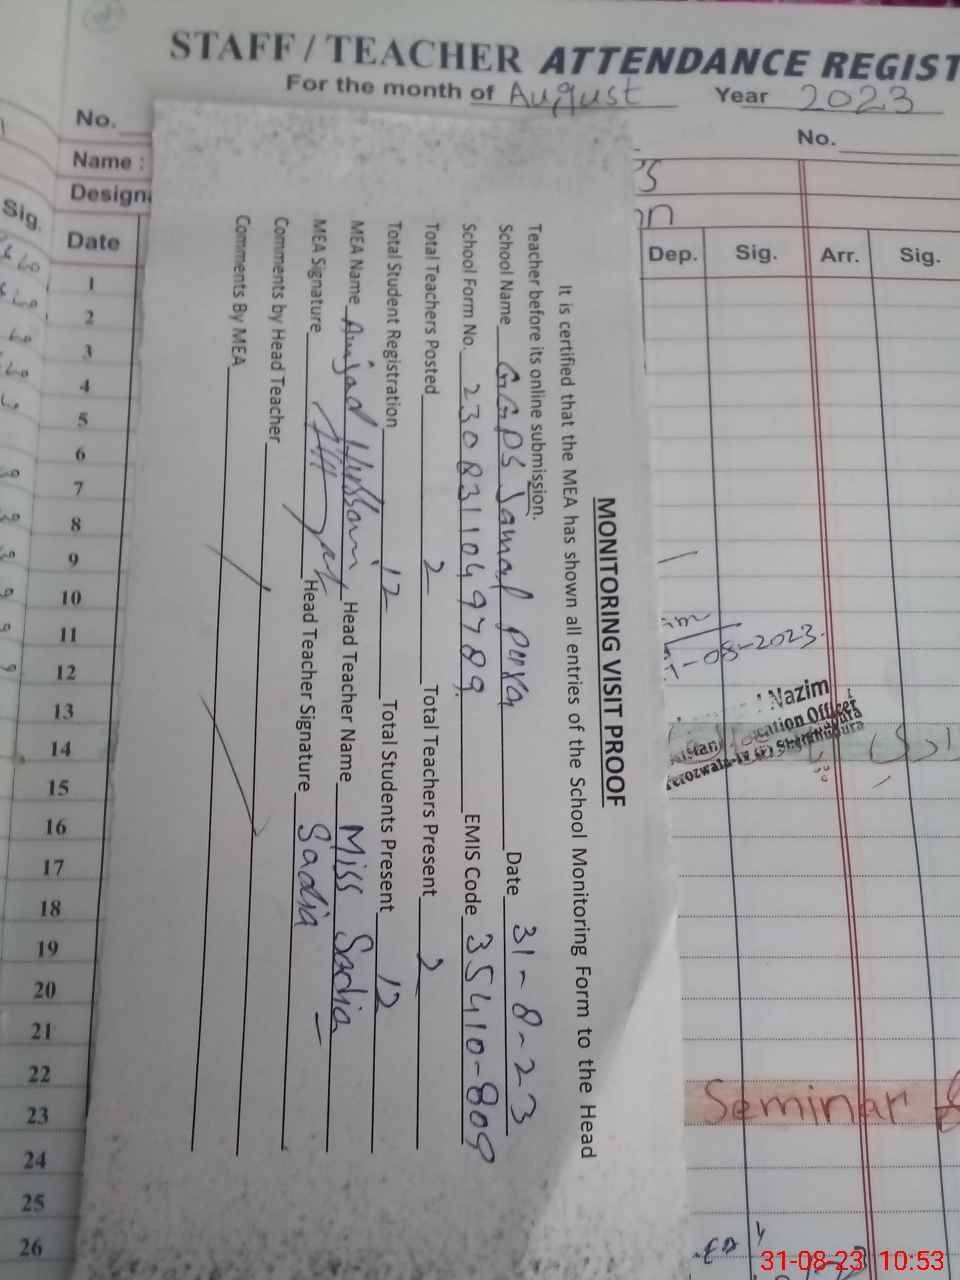 STAFF / TEACHER ATTENDANCE REGIST
For the month of August Year 2023
No. No.
Name :
Design
Sig. Date Dep. Sig. Arr. Sig.
1
2
3
4
5
6
7
8
9
10
11
12
13
14
15
16
17
18
19
20
21
22
23
24
25
26
MONITORING VISIT PROOF
It is certified that the MEA has shown all entries of the School Monitoring Form to the Head
Teacher before its online submission.
School Name GGPS Jamal pura Date 31-8-23
School Form No. 2308311049789 EMIS Code 35410-809
Total Teachers Posted 2 Total Teachers Present 2
Total Student Registration 12 Total Students Present 12
MEA Name Amjad Hussain Head Teacher Name Miss Sadia
MEA Signature Head Teacher Signature Sadia
Comments by Head Teacher
Comments By MEA
-08-2023
Nazim
cation Officer
Ferozwala-IV (F) Sheikhupura
Seminar
31-08-23 10:53